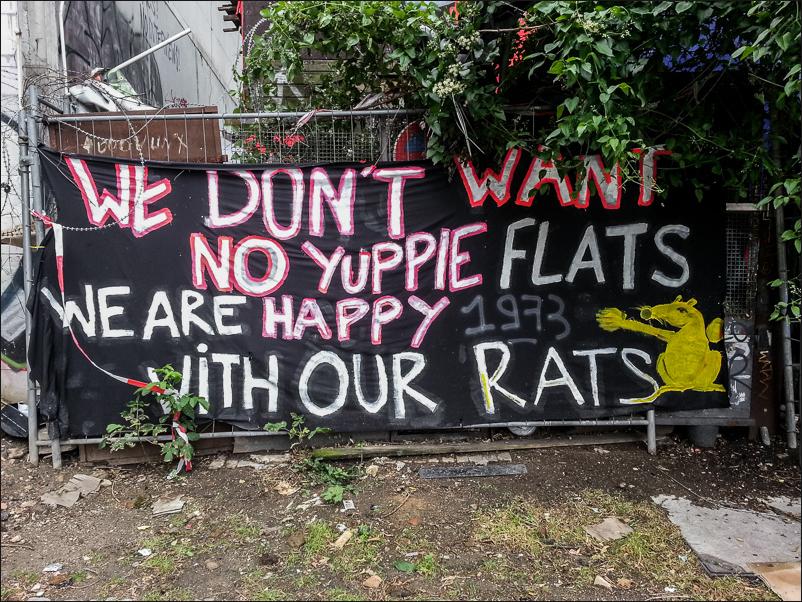 WE DON'T WANT
NO YUPPIE FLATS
WE ARE HAPPY 1973
WiTH OUR RATS